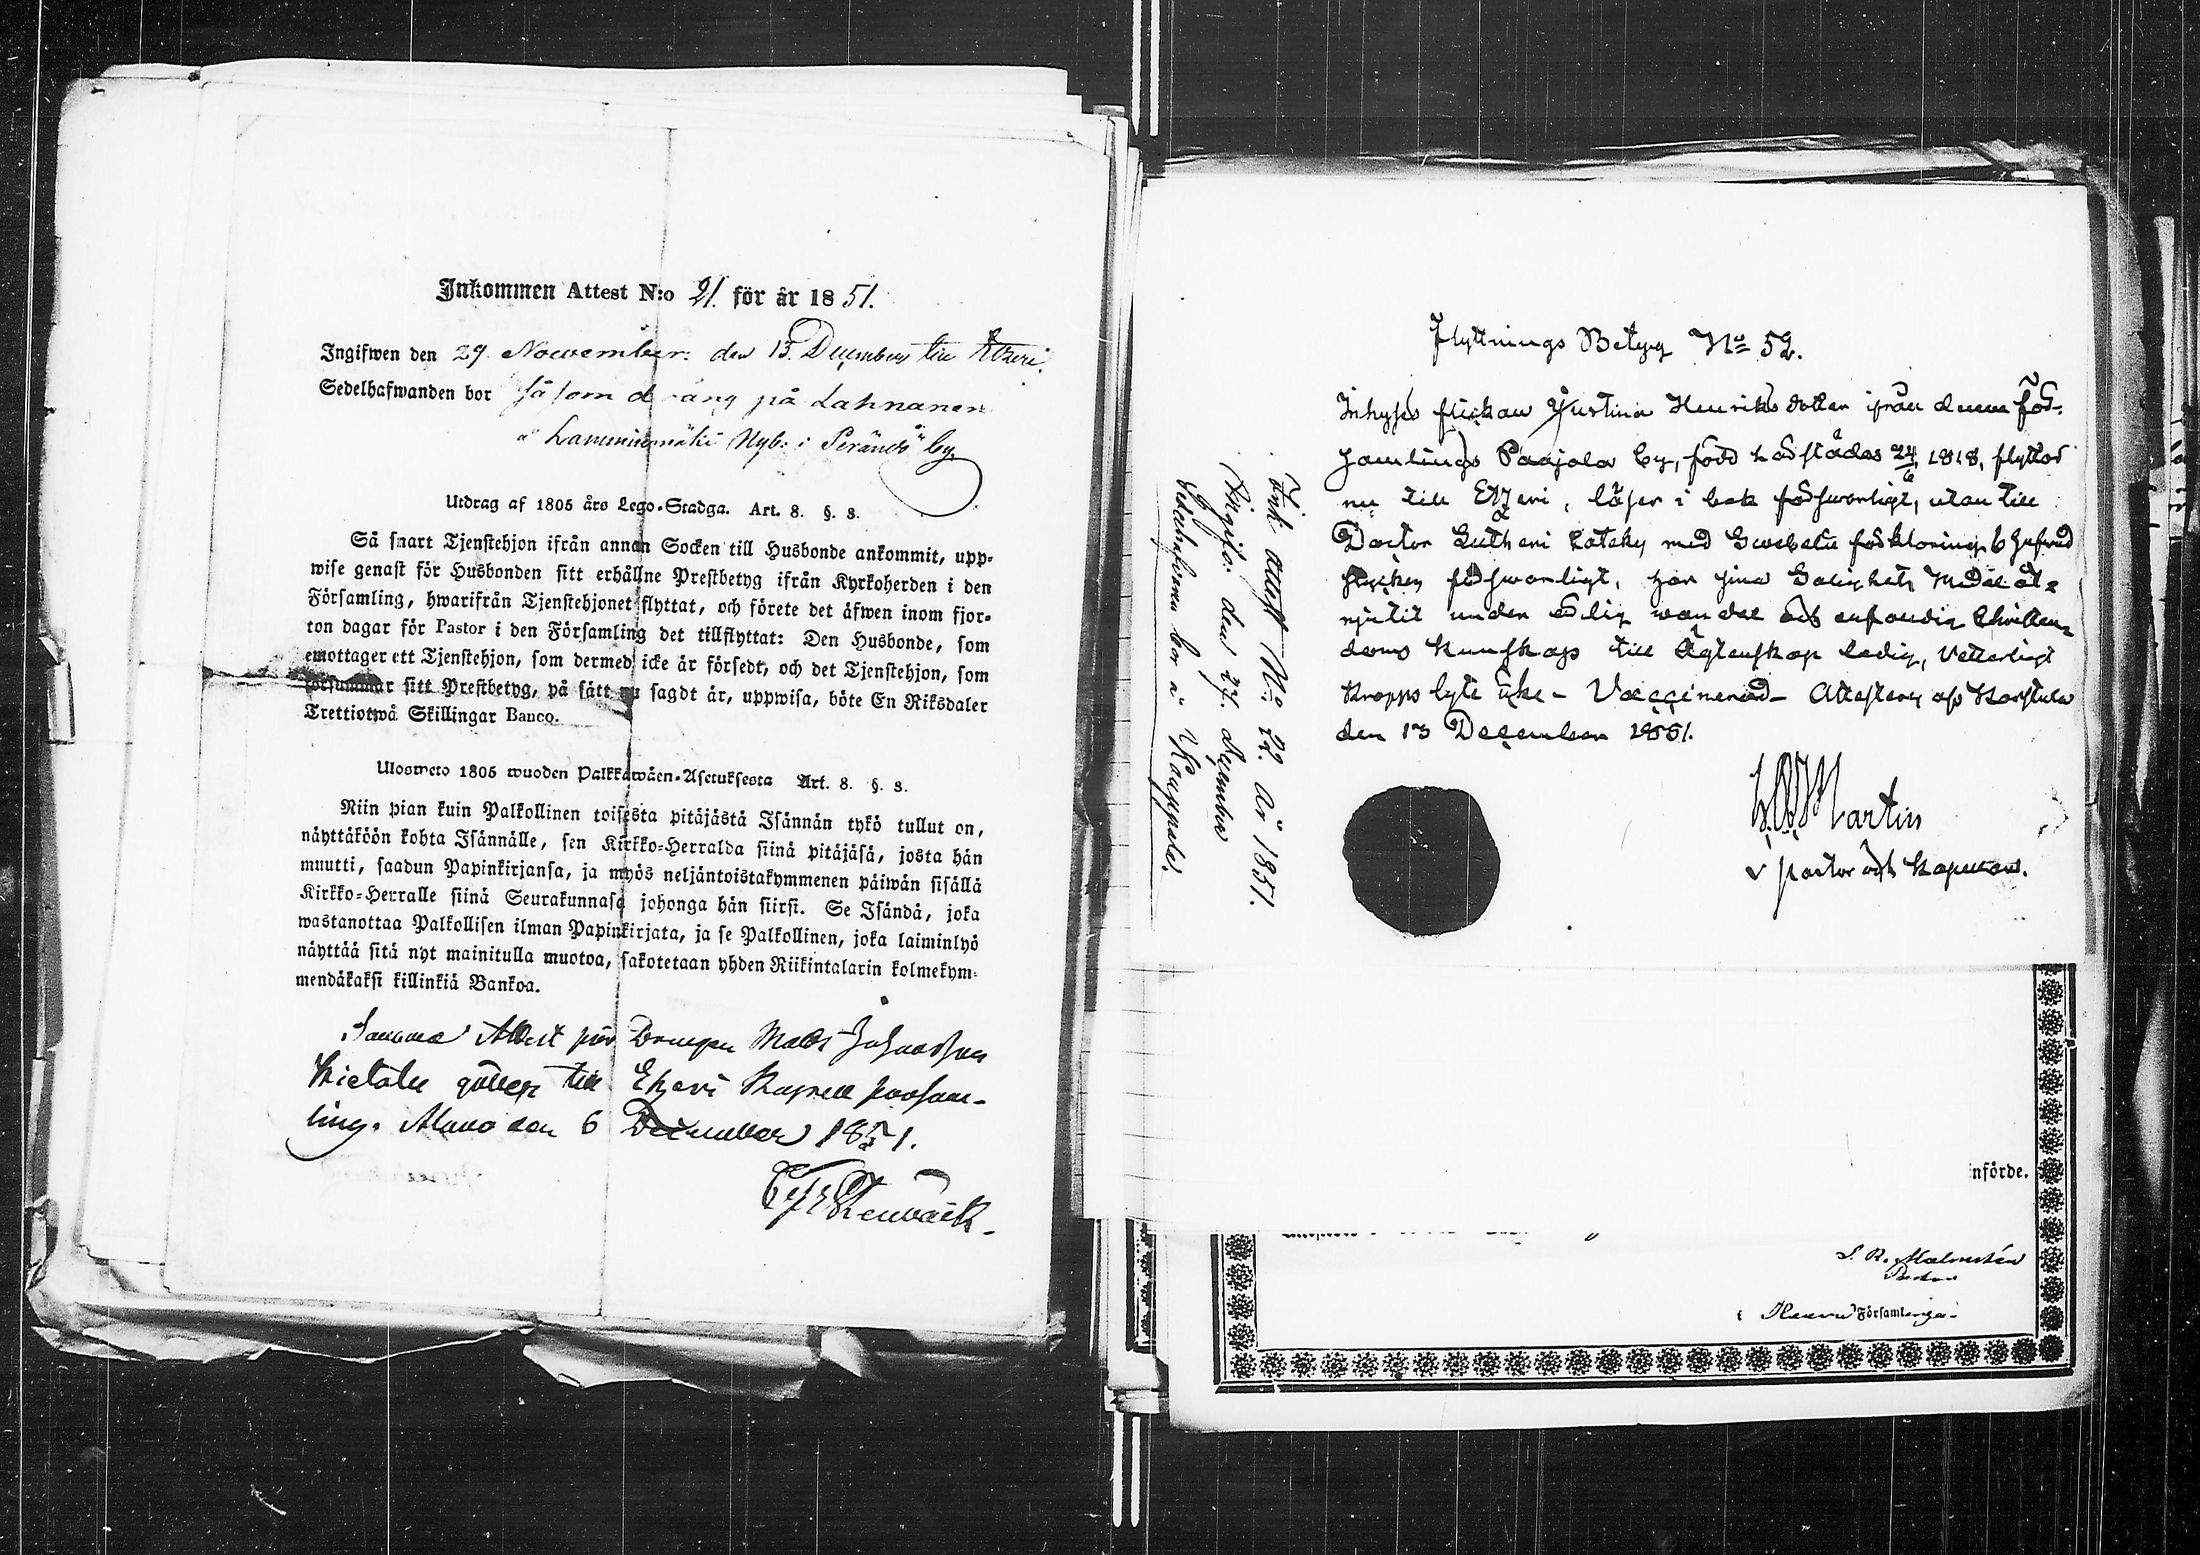 Inkommen Attest N:o 21. för år 1851.
Ingifwen den 29. November: den 13. December till Etzeri.
Sedelhafwanden bor såsom dräng på Lahnanen
a Lamminmäki Nyb: i Peränds by.
Utdrag af 1805 års Lego-Stadga. Art. 8. §. 8.
Så snart Tjenstehjon ifrån annan Socken till Husbonde ankommit, upp-
wise genast för Husbonden sitt erhållne Prestbetyg ifrån Kyrkoherden i den
Församling, hwarifrån Tjenstehjonet flyttat, och förete det äfwen inom fjor-
ton dagar för Pastor i den Församling det tillflyttat: Den Husbonde, som
emottager ett Tjenstehjon, som dermed icke är försedt, och det Tjenstehjon, som
försummar sitt Prestbetyg, på sätt nu sagdt är, uppwisa, böte En Riksdaler
Trettiotwå Skillingar Banco.
Ulosweto 1805 wuoden Palkkawäen-Asetuksesta Art. 8. §. 8.
Niin pian kuin Palkollinen toisesta pitäjästä Isännän tykö tullut on,
näyttäköön kohta Isännälle, sen Kirkko-Herralda siinä pitäjäsä, josta hän
muutti, saadun Papinkirjansa, ja myös neljäntoistakymmenen päiwän sisällä
Kirkko-Herralle siinä Seurakunnasa johonga hän siirsi. Se Isändä, joka
wastanottaa Palkollisen ilman Papinkirjata, ja se Palkollinen, joka laiminlyö
näyttää sitä nyt mainitulla muotoa, sakotetaan yhden Riikintalarin kolmekym-
mendäkaksi killinkiä Bankoa.
Samma Attest för Drengen Matts Johansson
gäller till Etzeri Kapell församl-
ling. Alavo den 6 December 1851.
Stenbäck
Flyttnings Betyg No 52.
Inhyses flickan Justina Henriks dotter ifrån denne För-
samlings Paajala by, född härstädes 24/6 1818, flyttar
nu till Etzeri, läser i bok försvarligt, utan till
Doctor Lutheri Cateches med Svebelii förklaring
stycken försvarligt, har sina Salighets Medel åt-
njutit under ärlig wandel och enfaldig Christen-
doms kunskap till Ägtenskap ledig, Vetterligt
kropps lyte icke – Vaccinerad – Attesterar af Karstula
den 13 December 1851.
Martin
v pastor och Kapellan.
Ink attest No: 22. år 1851.
Ingifv. den 27. December
Sedelhafvaren bor i Kauppala.
nförde.
S. R. Malmstén
Pastor
i Församlinga.